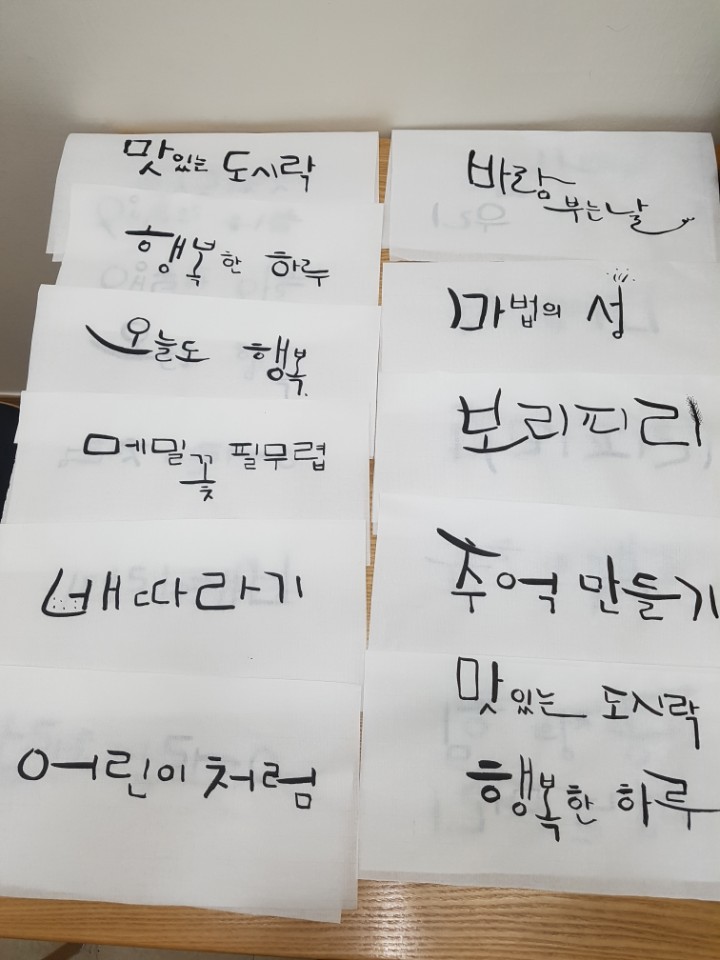 맛있는 도시락
행복한 하루
오늘도 행복
메밀꽃 필무렵
배따라기
어린이처럼
바람부는날
마법의 성
보리피리
추억 만들기
맛있는 도시락
행복한 하루